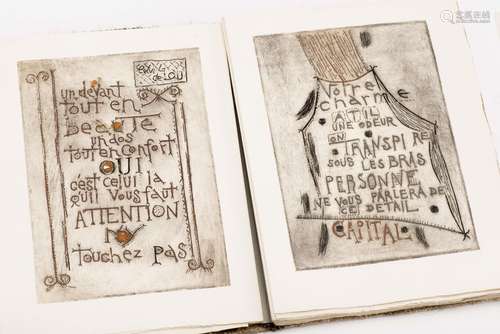 un devant
tout en
Beauté
un dos
tout en confort
OUI
c'est celui la
qu'il vous faut
ATTENTION
N'y
touchez pas
Votre
charme
A T IL
UNE ODEUR
ON TRANSPIRE
SOUS LES BRAS
PERSONNE
NE VOUS PARLERA DE
CE DETAIL
CAPITAL